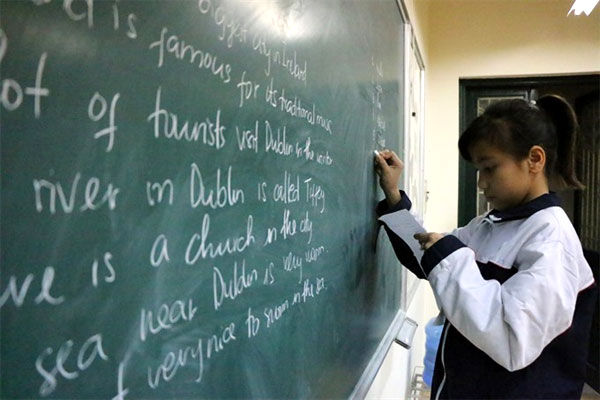 is famous for its traditional music
lot of tourists visit Dublin in the winter
river in Dublin is called Tiffey
is a church in the city
sea near Dublin is very warm.
very nice to swim in the sea.
biggest city in Ireland